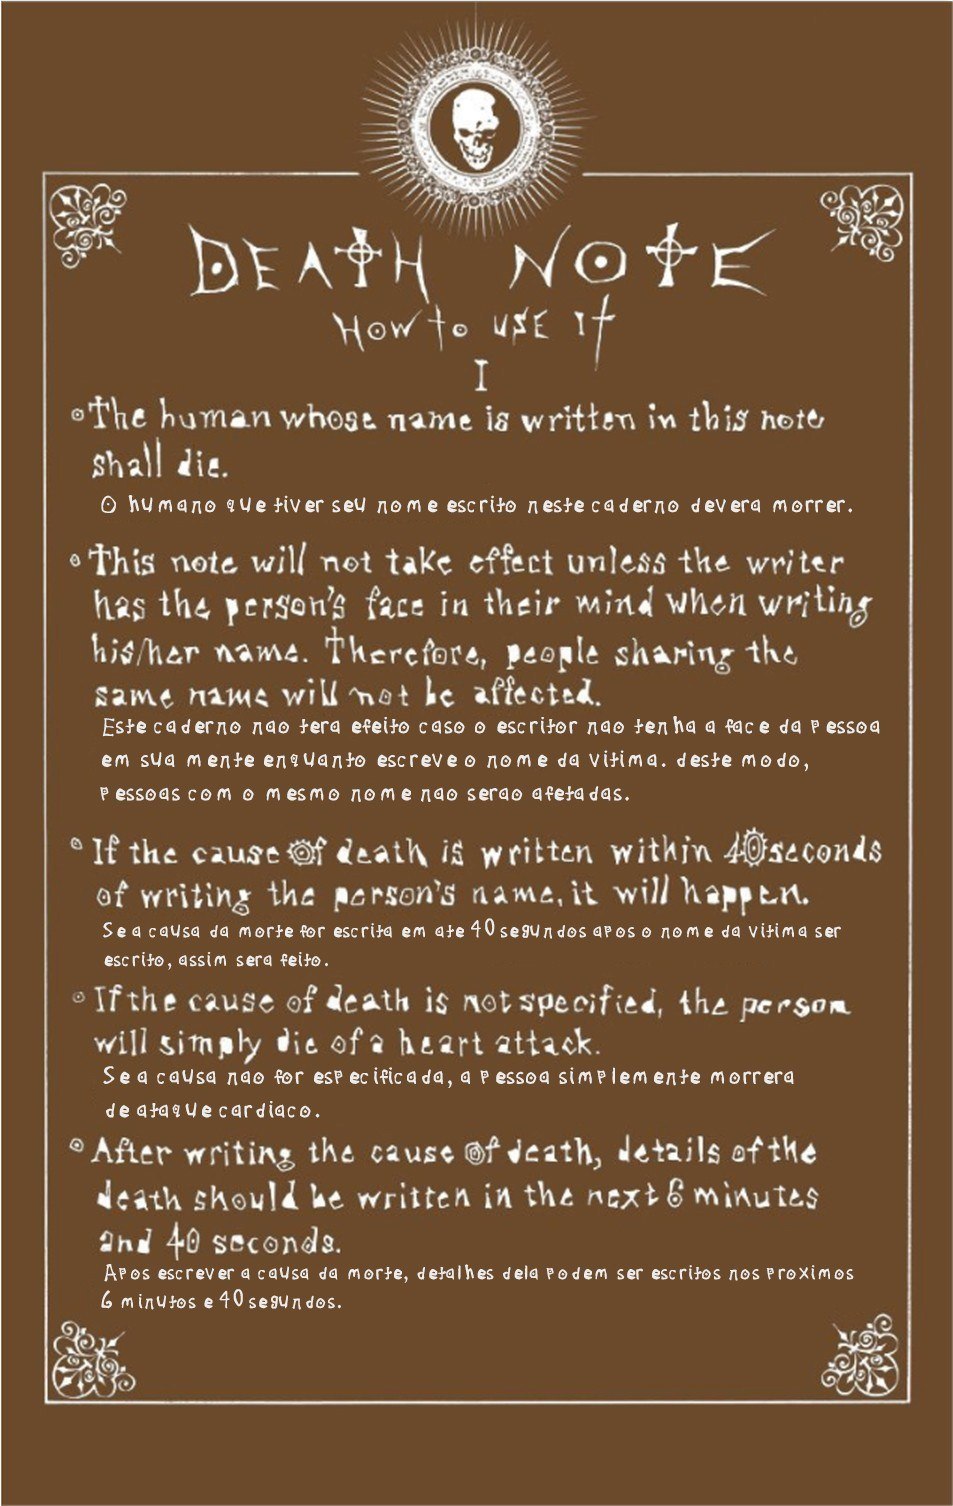 DEATH NOTE
How to use it
I
The human whose name is written in this note
shall die.
O humano que tiver seu nome escrito neste caderno devera morrer.
This note will not take effect unless the writer
has the person's face in their mind when writing
his/her name. Therefore, people sharing the
same name will not be affected.
Este caderno nao tera efeito caso o escritor nao tenha a face da pessoa
em sua mente enquanto escreve o nome da vitima. deste modo,
pessoas com o mesmo nome nao serao afetadas.
If the cause of death is written within 40 seconds
of writing the person's name, it will happen.
Se a causa da morte for escrita em ate 40 segundos apos o nome da vitima ser
escrito, assim sera feito.
If the cause of death is not specified, the person
will simply die of a heart attack.
Se a causa nao for especificada, a pessoa simplemente morrera
de ataque cardiaco.
After writing the cause of death, details of the
death should be written in the next 6 minutes
and 40 seconds.
Apos escrever a causa da morte, detalhes dela podem ser escritos nos proximos
6 minutos e 40 segundos.